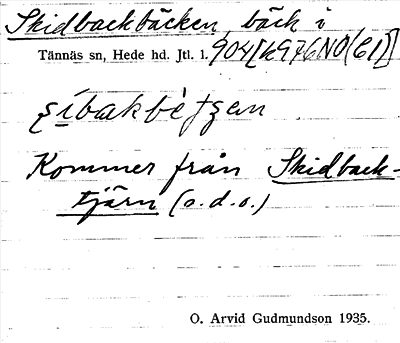 Skidbackbäcken, bäck i
Tännäs sn, Hede hd. Jtl. l. 904[k976NO(61)]
Kommer från Skidback-
tjärn (a.d.o.)
O. Arvid Gudmundson 1935.